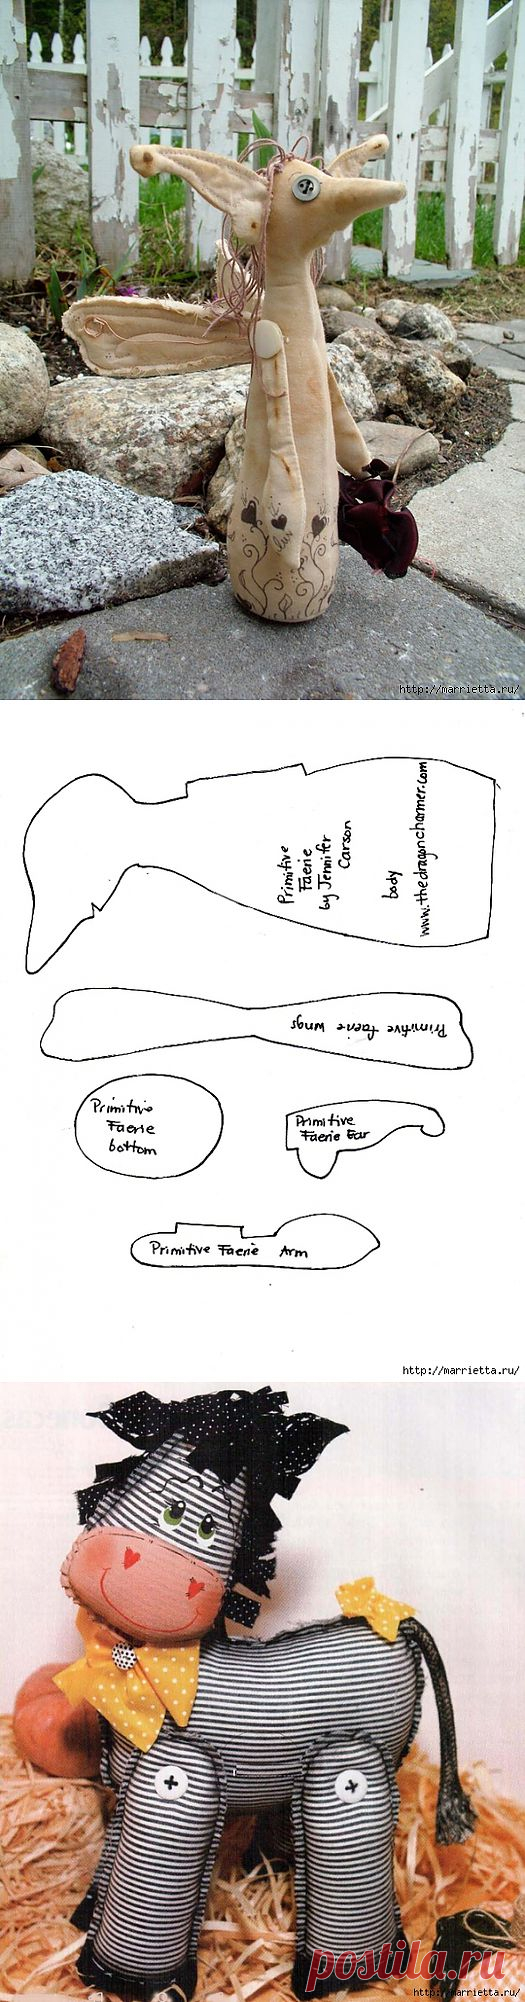 luv
http://marrietta.ru/
Primitive
Faerie
by Jennifer
Carson
body
www.thedragoncharmer.com
Primitive faerie wings
Primitive
Faerie
bottom
Primitive
Faerie Ear
Primitive Faerie Arm
http://marrietta.ru/
postila.ru
http://marrietta.ru/